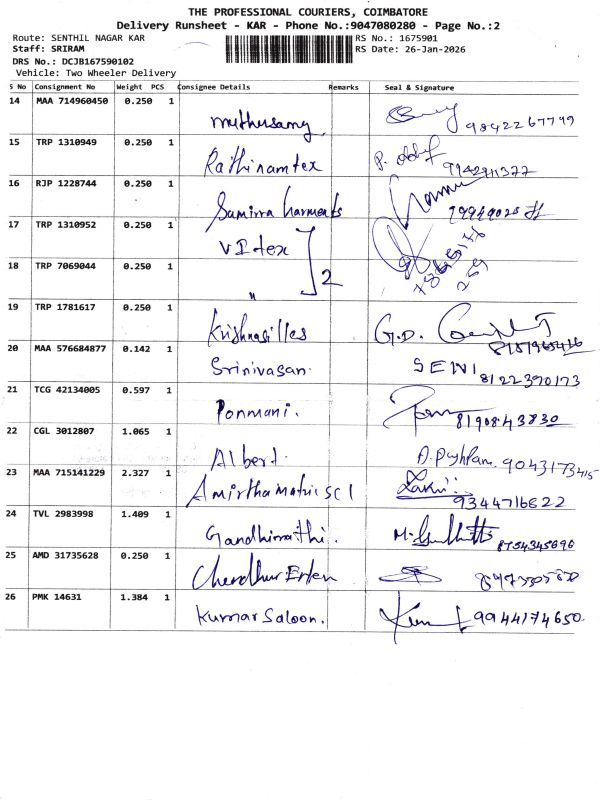 THE PROFESSIONAL COURIERS, COIMBATORE
Delivery Runsheet - KAR - Phone No.:9047080280 - Page No.:2
Route: SENTHIL NAGAR KAR RS No.: 1675901
Staff: SRIRAM RS Date: 26-Jan-2026
DRS No.: DCJB167590102
Vehicle: Two Wheeler Delivery
S No Consignment No Weight PCS Consignee Details Remarks Seal & Signature
14 MAA 714960450 0.250 1
muthusamy 9842267749
15 TRP 1310949 0.250 1
Rathinamtex
16 RJP 1228744 0.250 1
Samirra harments
17 TRP 1310952 0.250 1
VItex
2
18 TRP 7069044 0.250 1
"
19 TRP 1781617 0.250 1
G.D.
20 MAA 576684877 0.142 1
Srinivasan. 8122390173
21 TCG 42134005 0.597 1
Ponmani. 8190843830
22 CGL 3012807 1.065 1
Albert. 9043173415
23 MAA 715141229 2.327 1
Amirtha Matric scl 9344716822
24 TVL 2983998 1.409 1
Gandhimathi. 8754345696
25 AMD 31735628 0.250 1
26 PMK 14631 1.384 1
Kumar Saloon. 9944174650